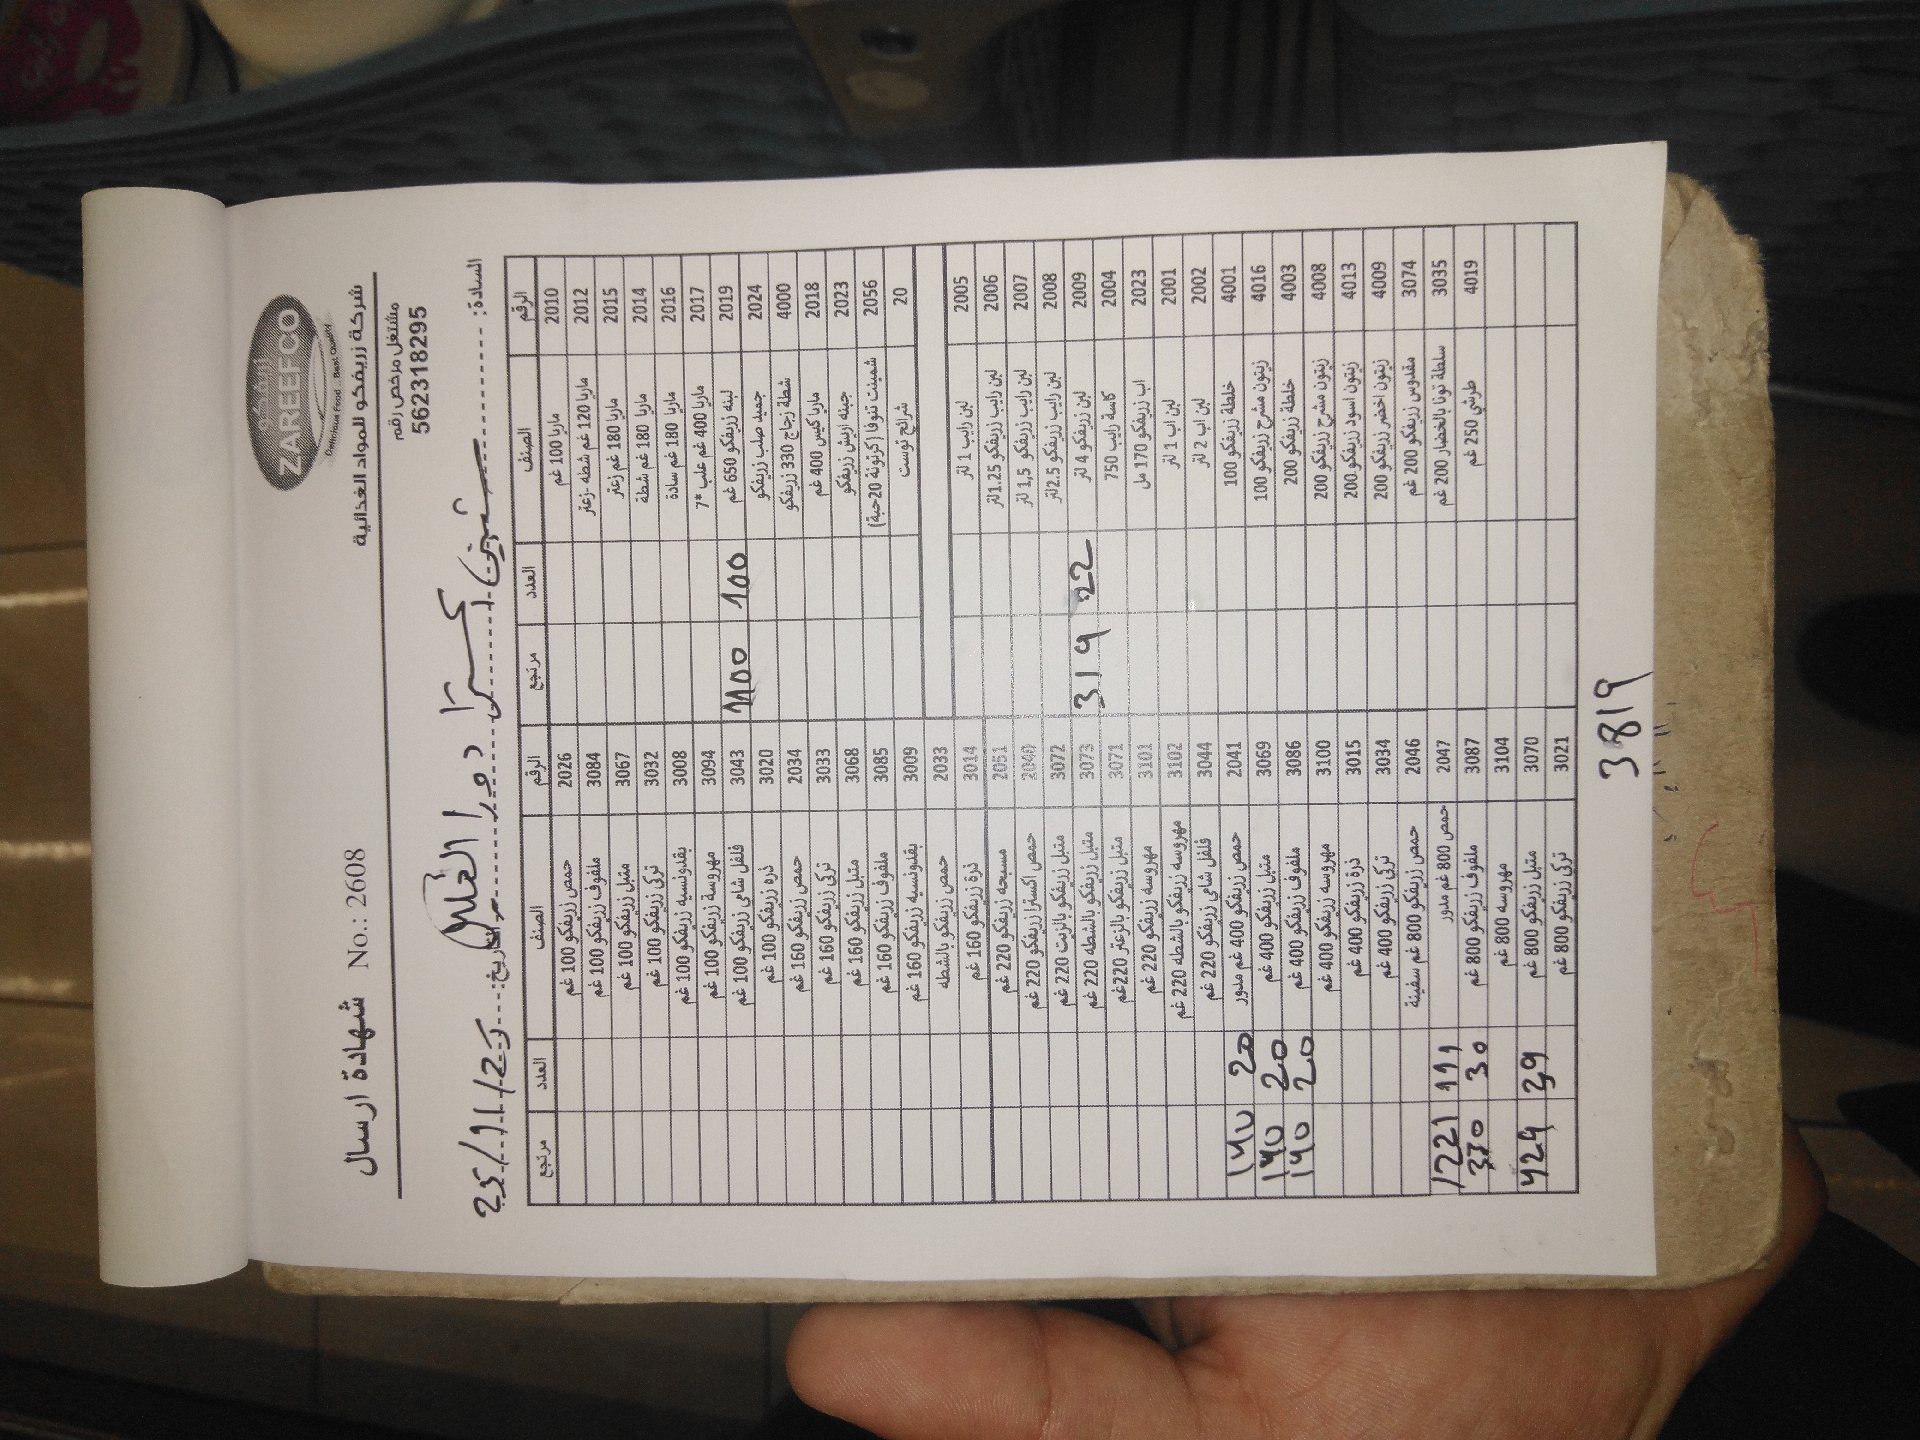 زريفكو
ZAREEFCO
Delicious Food .. Best Quality
شركة زريفكو للمواد الغذائية
شهادة ارسال No.: 2608
مشتغل مرخص رقم
562318295
السادة:
التاريخ: 25/11/2
الرقم الصنف العدد مرتجع الرقم الصنف العدد مرتجع
2010 ماريا 100 غم 2026 حمص زريفكو 100 غم
2012 ماريا 120 غم شطه -زعتر 3084 ملفوف زريفكو 100 غم
2015 ماريا 180 غم زعتر 3067 متبل زريفكو 100 غم
2014 ماريا 180 غم شطة 3032 تركي زريفكو 100 غم
2016 ماريا 180 غم سادة 3008 بقدونسيه زريفكو 100 غم
2017 ماريا 400 غم علب *7 3094 مهروسة زريفكو 100 غم
2019 لبنه زريفكو 650 غم 100 1100 3043 فلفل شامي زريفكو 100 غم
2024 جميد صلب زريفكو 3020 ذره زريفكو 100 غم
4000 شطة زجاج 330 زريفكو 2034 حمص زريفكو 160 غم
2018 ماريا كيس 400 غم 3033 تركي زريفكو 160 غم
2023 جبنه اريش زريفكو 3068 متبل زريفكو 160 غم
2056 شمينت تنوفا (كرتونة 20حبة) 3085 ملفوف زريفكو 160 غم
20 شرائح توست 3009 بقدونسيه زريفكو 160 غم
2033 حمص زريفكو بالشطه
2005 لبن رايب 1 لتر 3014 ذرة زريفكو 160 غم
2006 لبن رايب زريفكو 1.25لتر 2051 مسبحه زريفكو 220 غم
2007 لبن رايب زريفكو 1,5 لتر 2040 حمص اكسترا زريفكو 220 غم
2008 لبن رايب زريفكو 2.5لتر 3072 متبل زريفكو بالزيت 220 غم
2009 لبن زريفكو 4 لتر 22 319 3073 متبل زريفكو بالشطه 220 غم
2004 كاسة رايب 750 3071 متبل زريفكو بالزعتر 220غم
2023 اب زريفكو 170 مل 3101 مهروسه زريفكو 220 غم
2001 لبن اب 1 لتر 3102 مهروسه زريفكو بالشطه 220 غم
2002 لبن اب 2 لتر 3044 فلفل شامي زريفكو 220 غم
4001 خلطة زريفكو 100 2041 حمص زريفكو 400 غم مدور 20 140
4016 زيتون مشرح زريفكو 100 3069 متبل زريفكو 400 غم 20 140
4003 خلطة زريفكو 200 3086 ملفوف زريفكو 400 غم 20 140
4008 زيتون مشرح زريفكو 200 3100 مهروسه زريفكو 400 غم
4013 زيتون اسود زريفكو 200 3015 ذرة زريفكو 400 غم
4009 زيتون اخضر زريفكو 200 3034 تركي زريفكو 400 غم
3074 مقدوس زريفكو 200 غم 2046 حمص زريفكو 800 غم سفينة
3035 سلطة تونا بالخضار 200 غم 2047 حمص 800 غم مدور 111 1221
4019 طرشي 250 غم 3087 ملفوف زريفكو 800 غم 30 330
3104 مهروسه 800 غم
3070 متبل زريفكو 800 غم 29 424
3021 تركي زريفكو 800 غم
3819